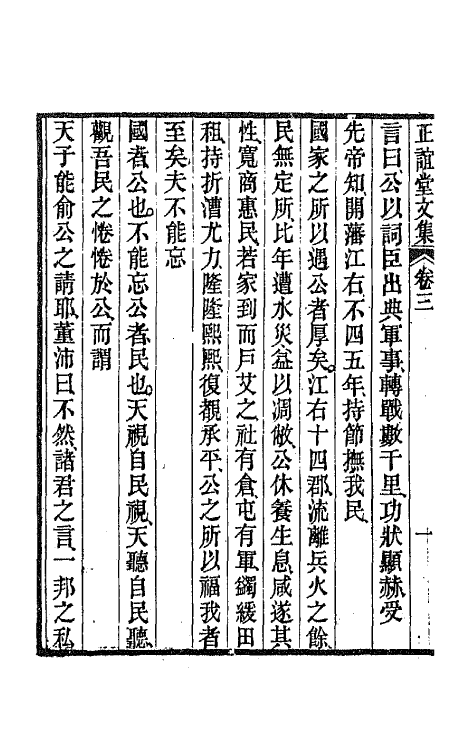 正誼堂文集 卷三 一
言曰公以詞臣出典軍事轉戰數千里功狀顯赫受
先帝知開藩江右不四五年持節撫我民
國家之所以遇公者厚矣江右十四郡流離兵火之餘
民無定所比年遭水災益以凋敝公休養生息咸遂其
性寬商惠民若家到而戶艾之社有倉屯有軍蠲緩田
租持折漕尤力隆隆熙熙復覩承平公之所以福我者
至矣夫不能忘
國者公也不能忘公者民也天視自民視天聽自民聽
觀吾民之惓惓於公而謂
天子能俞公之請耶董沛曰不然諸君之言一邦之私